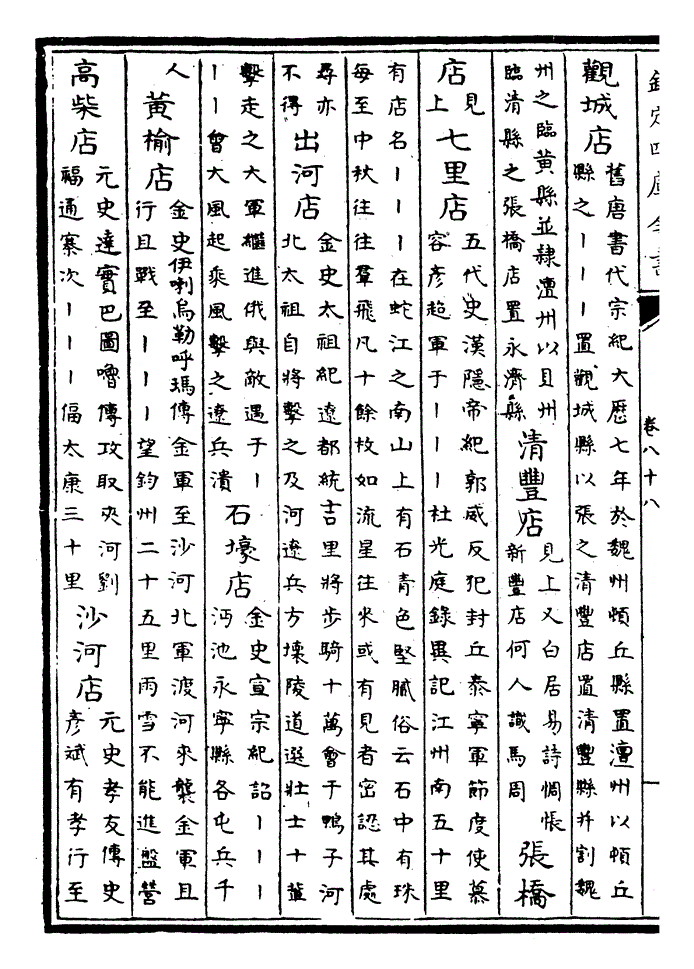 欽定四庫全書
卷八十八
觀城店
舊唐書代宗紀大厯七年於魏州頓丘縣置澶州以頓丘
縣之丨丨丨置觀城縣以張之清豐店置清豐縣并割魏
州之臨黃縣並隸澶州以貝州
臨清縣之張橋店置永濟縣
清豐店
見上又白居易詩惆悵
新豐店何人識馬周
張橋
店
見
上
七里店
五代史漢隱帝紀郭威反犯封丘泰寧軍節度使慕
容彦超軍于丨丨丨杜光庭錄異記江州南五十里
有店名丨丨丨在蛇江之南山上有石青色堅膩俗云石中有珠
每至中秋往往羣飛凡十餘枚如流星往來或有見者密認其處
尋亦
不得
出河店
金史太祖紀遼都統吉里將步騎十萬會于鴨子河
北太祖自將擊之及河遼兵方壊陵道選壯士十輩
擊走之大軍繼進俄與敵遇于丨
丨丨會大風起乘風擊之遼兵潰
石壕店
金史宣宗紀詔丨丨丨
沔池永寧縣各屯兵千
人
黃榆店
金史伊喇烏勒呼瑪傳金軍至沙河北軍渡河來襲金軍且
行且戰至丨丨丨望鈞州二十五里雨雪不能進盤營
高柴店
元史達實巴圖嚕傳攻取夾河劉
福通寨次丨丨丨偪太康三十里
沙河店
元史孝友傳史
彦斌有孝行至